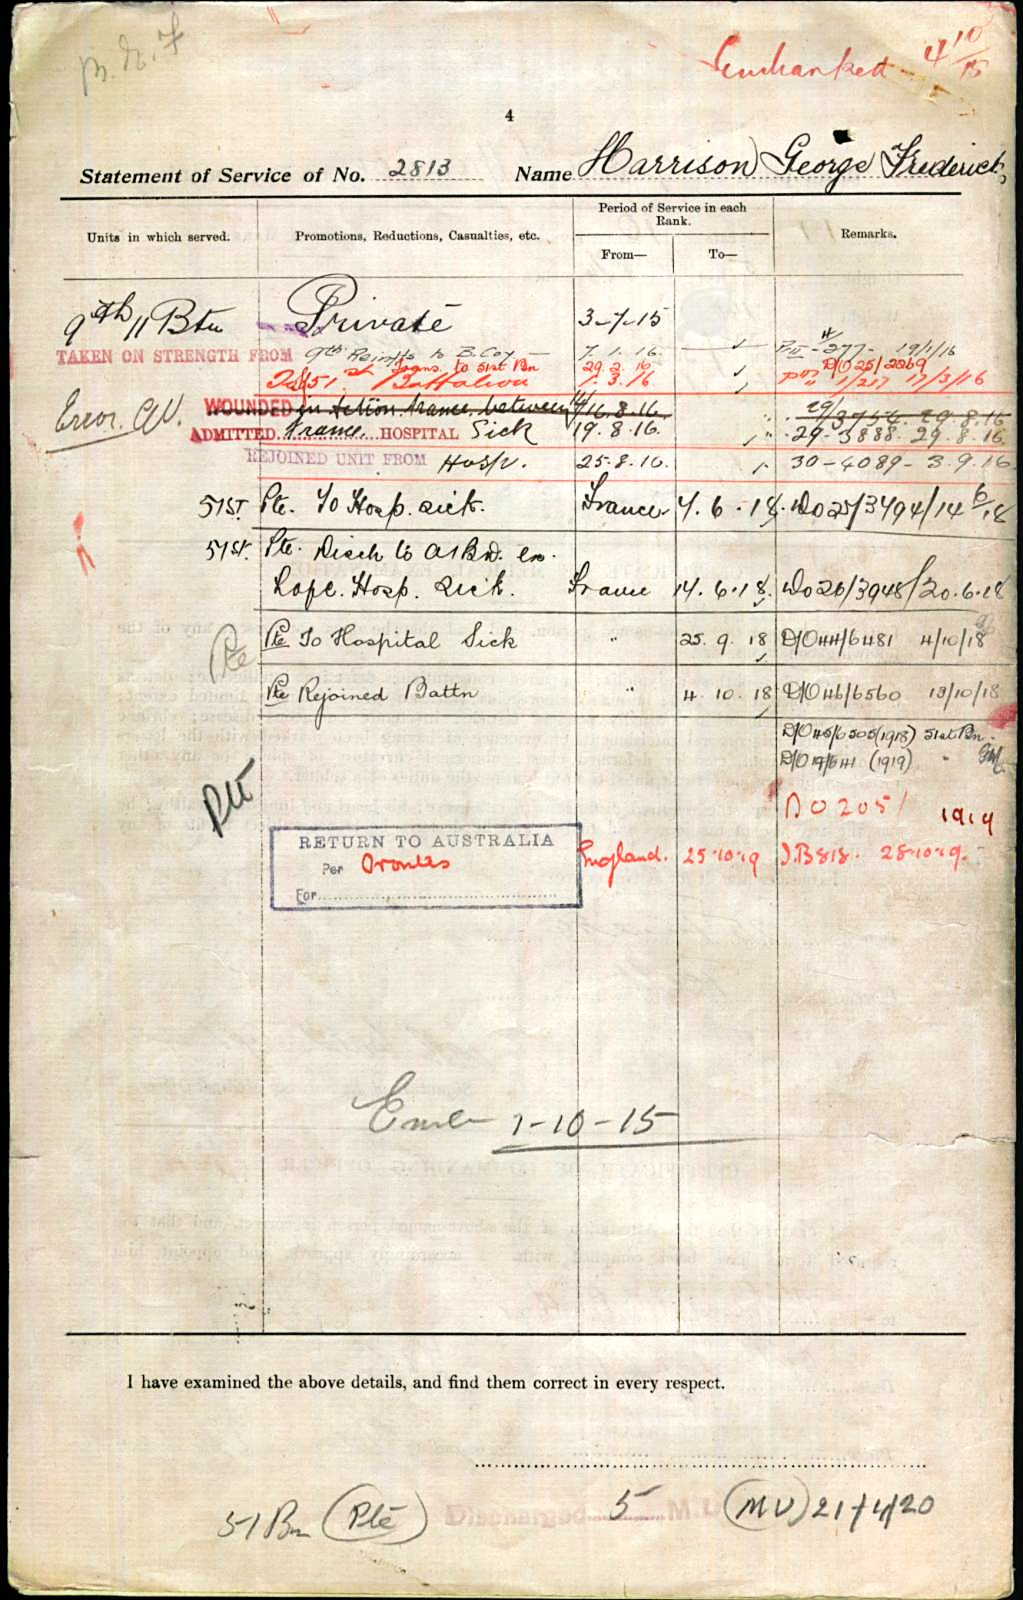 B. E. F
Embarked 4/10/15
4
Statement of Service of No. 2813 Name Harrison George Frederick
Units in which served. Promotions, Reductions, Casualties, etc. Period of Service in each Rank. Remarks.
From— To—
9th/11 Btn Private 3-7-15
TAKEN ON STRENGTH FROM 9th Reinfts to B. Coy 7.1.16. 19/1/16
Trans. to 51st Bn 29.2.16 D/O 25/2269
51st Battalion 1.3.16 17/3/16
WOUNDED in Action France between 14/16.8.16. 29/3756 29.8.16
Error
ADMITTED France HOSPITAL Sick 19.8.16. 29-3888. 29.8.16.
REJOINED UNIT FROM Hosp. 25.8.16. 30-4089-3.9.16
51ST Pte. To Hosp. sick. France 7.6.18. Do 25/3794/14/6/18
51st. Pte. Disch to A1 Bd. ex
Hosp. sick. France 14.6.18. Do 26/3948/20.6.18
Pte
Pte To Hospital Sick " 25.9.18 D/O 44/6481 4/10/18
Pte Rejoined Battn " 4.10.18 D/O 46/6560 13/10/18
D/O 45/6505 (1918) 51st Bn.
D/O 19/641 (1919) "
Pte
DO 205/ 1919
RETURN TO AUSTRALIA
Per Orontes England. 25.10.19 28.10.19.
For
1-10-15
I have examined the above details, and find them correct in every respect.
51 Bn (Pte) Discharged 5 M.D. (MU) 21/4/20